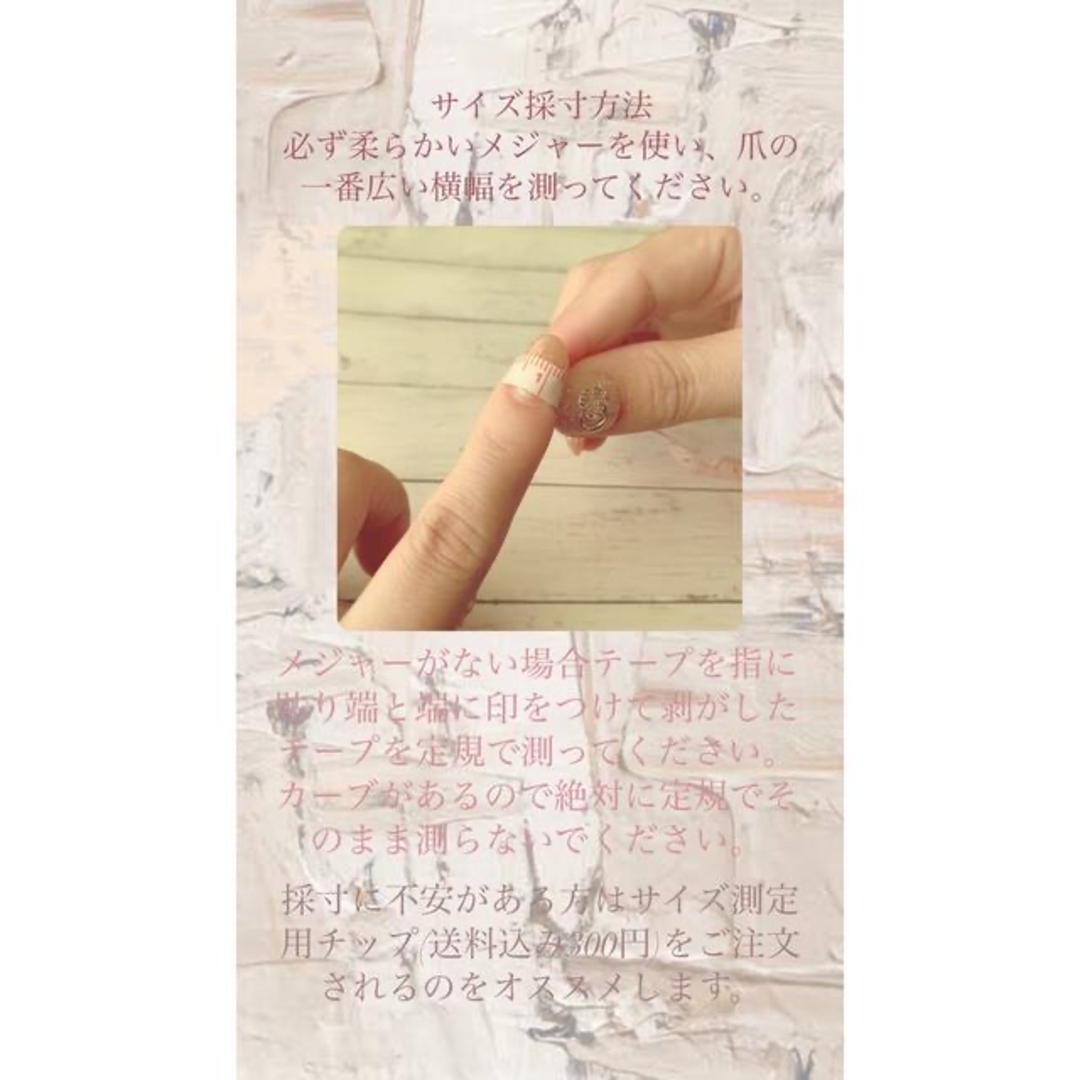 サイズ採寸方法
必ず柔らかいメジャーを使い、爪の
一番広い横幅を測ってください。
1
メジャーがない場合テープを指に
貼り端と端に印をつけて剥がした
テープを定規で測ってください。
カーブがあるので絶対に定規でそ
のまま測らないでください。
採寸に不安がある方はサイズ測定
用チップ(送料込み300円)をご注文
されるのをオススメします。